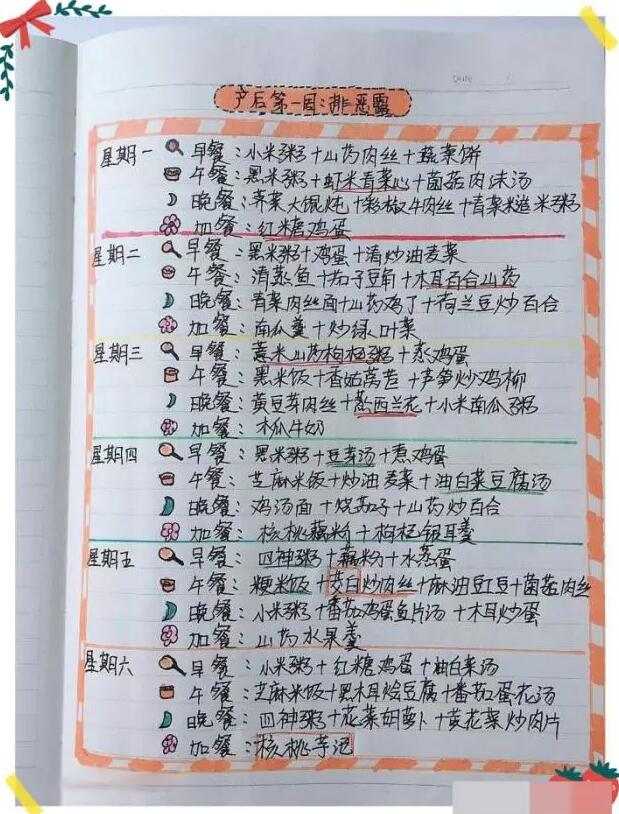 Date
产后第一周:排恶露
星期一 早餐:小米粥+山药肉丝+蔬菜饼
午餐:黑米粥+虾米青菜心+菌菇肉沫汤
晚餐:荠菜大馄饨+彩椒牛肉丝+青菜糙米粥
加餐:红糖鸡蛋
星期二 早餐:黑米粥+鸡蛋+清炒油麦菜
午餐:清蒸鱼+茄子豆角+木耳百合山药
晚餐:青菜肉丝面+山药鸡丁+荷兰豆炒百合
加餐:南瓜羹+炒绿叶菜
星期三 早餐:薏米山药枸杞粥+蒸鸡蛋
午餐:黑米饭+香菇莴苣+芦笋炒鸡柳
晚餐:黄豆芽肉丝+西兰花+小米南瓜粥
加餐:木瓜牛奶
星期四 早餐:黑米粥+豆汤+煮鸡蛋
午餐:芝麻米饭+炒油麦菜+油白菜豆腐汤
晚餐:鸡汤面+烧茄子+山药炒百合
加餐:核桃藕粉+枸杞银耳羹
星期五 早餐:四神粥+藕粉+水蒸蛋
午餐:粳米饭+茭白炒肉丝+麻油豇豆+菌菇肉丝
晚餐:小米粥+番茄鸡蛋鱼片汤+木耳炒蛋
加餐:山药水果羹
星期六 早餐:小米粥+红糖鸡蛋+油白菜汤
午餐:芝麻米饭+黑木耳烩豆腐+番茄蛋花汤
晚餐:四神粥+花菜胡萝卜+黄花菜炒肉片
加餐:核桃芋泥